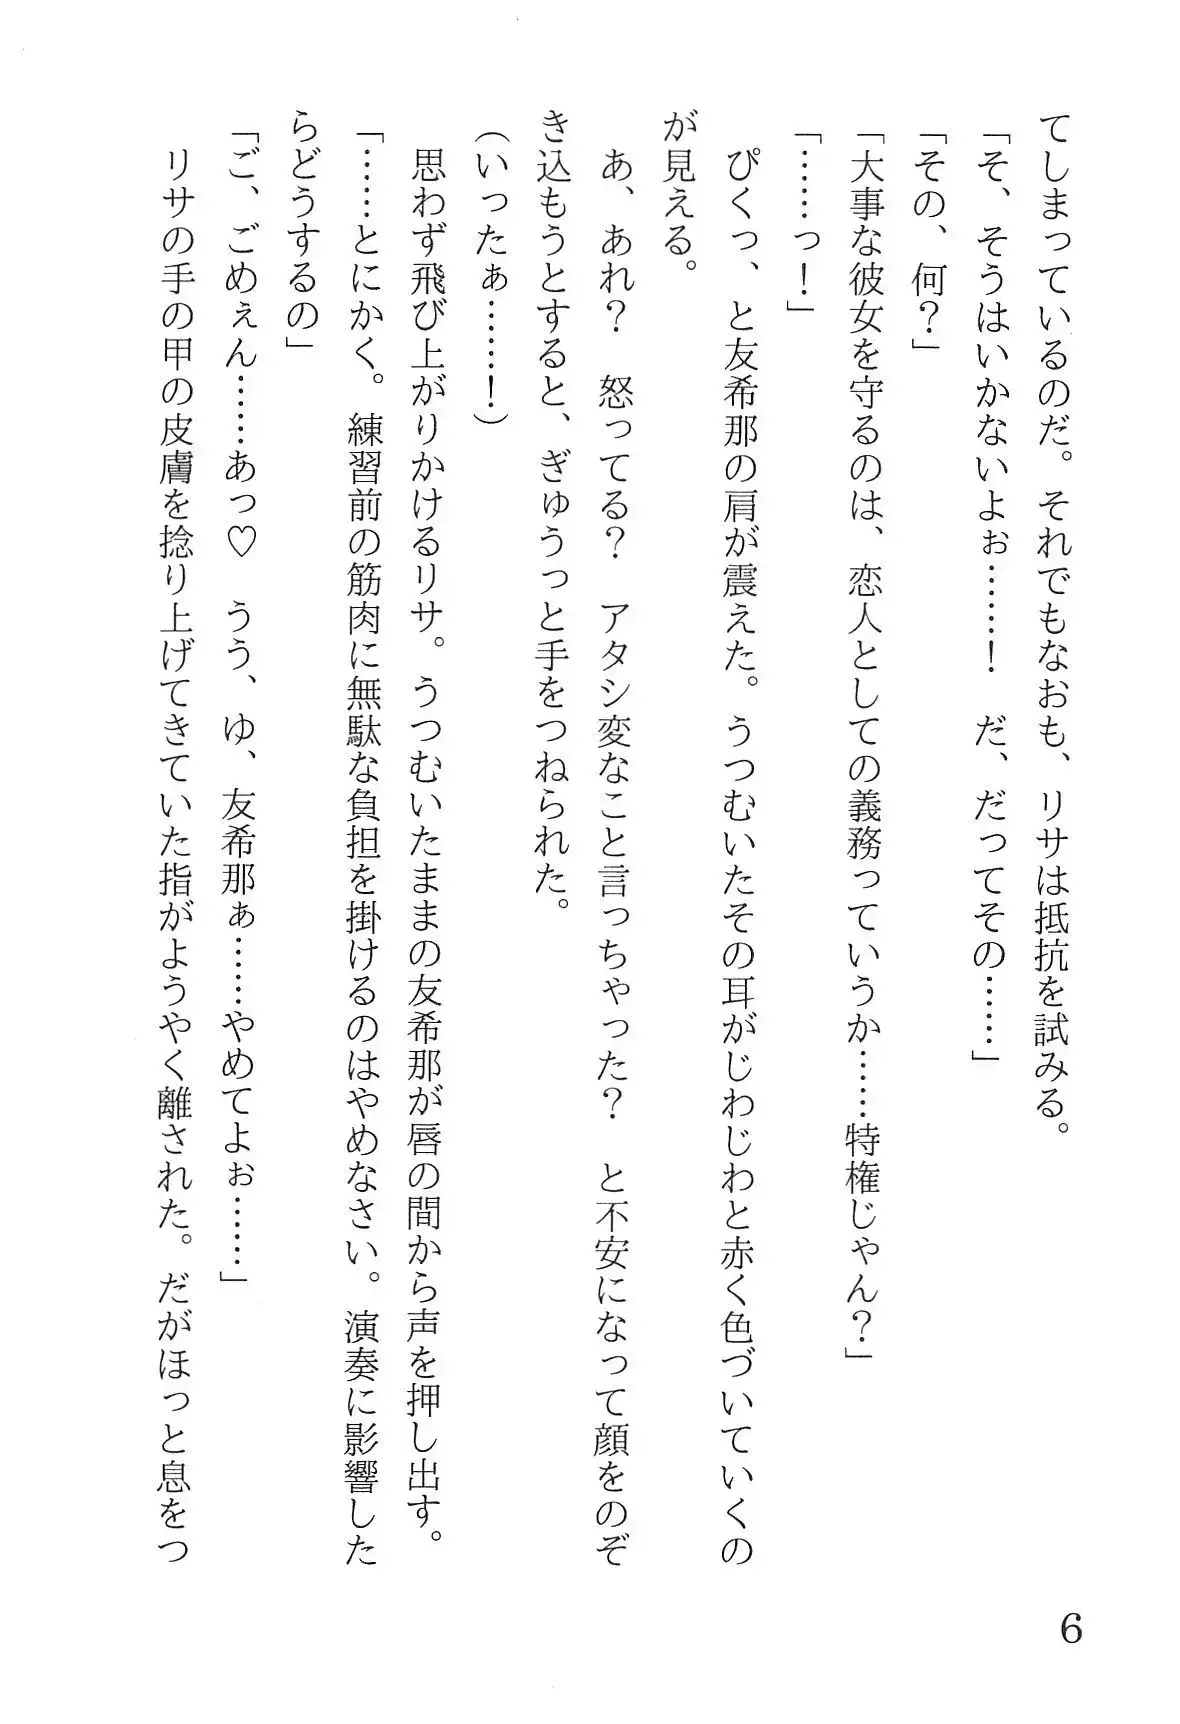 てしまっているのだ。それでもなおも、リサは抵抗を試みる。
「そ、そうはいかないよぉ……！　だ、だってその……」
「その、何？」
「大事な彼女を守るのは、恋人としての義務っていうか……特権じゃん？」
「……っ！」
　ぴくっ、と友希那の肩が震えた。うつむいたその耳がじわじわと赤く色づいていくの
が見える。
　あ、あれ？　怒ってる？　アタシ変なこと言っちゃった？　と不安になって顔をのぞ
き込もうとすると、ぎゅうっと手をつねられた。
（いったぁ……！）
　思わず飛び上がりかけるリサ。うつむいたままの友希那が唇の間から声を押し出す。
「……とにかく。練習前の筋肉に無駄な負担を掛けるのはやめなさい。演奏に影響した
らどうするの」
「ご、ごめぇん……あっ♡　うう、ゆ、友希那ぁ……やめてよぉ……」
　リサの手の甲の皮膚を捻り上げてきていた指がようやく離された。だがほっと息をつ
6